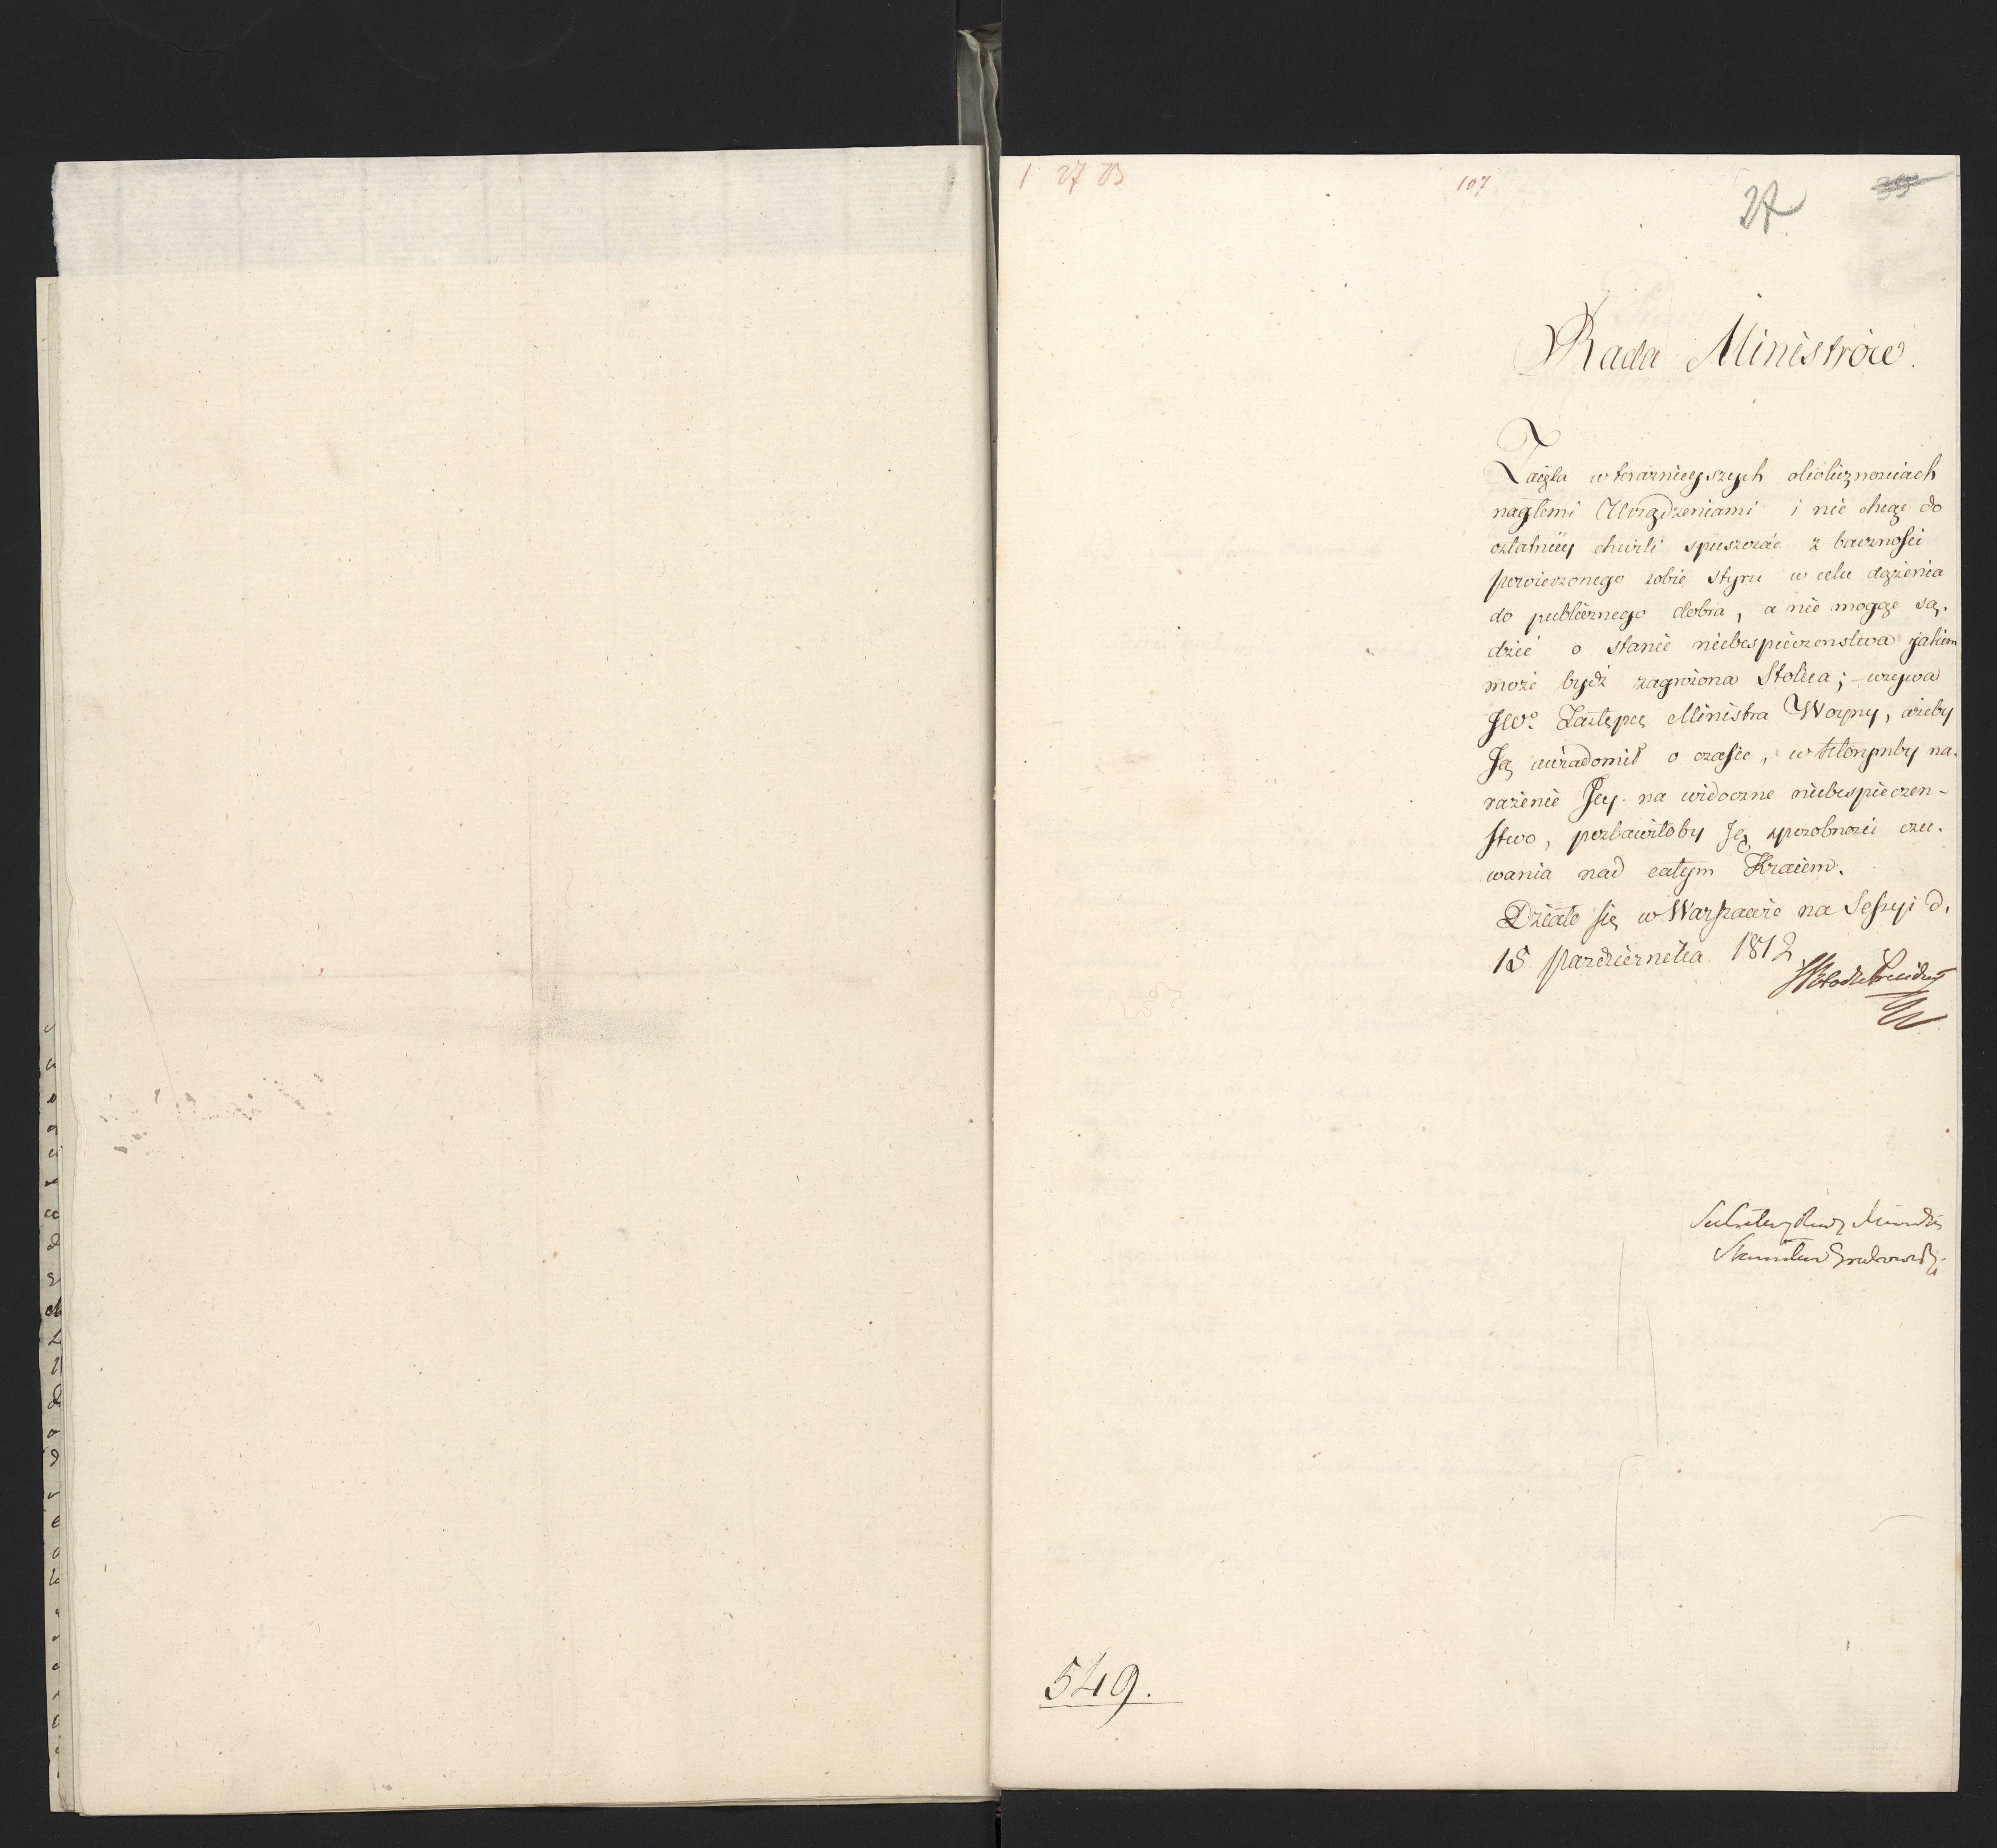 1 27 B
107
27
39
Rada Ministrów.
Zaięta w teraznieyszych okolicznosciach
nagłemi Urządzeniami i nie chcąc do
ostatniey chwili spuszczać z baczności
powierzonego sobie styru w celu dążenia
do publicznego dobra, a nie mogąc są-
dzić o stanie niebespieczenstwa jakiem
może bydź zagrożona Stolica; – wzywa
JWo. Zastępcę Ministra Woyny, ażeby
Ją uwiadomił o czasie, w którymby na-
rażenie Jey na widoczne niebespieczen-
stwo, pozbawiłoby Ją sposobności czu-
wania nad całym Kraiem.
Działo się w Warszawie na Sessyi d.
15 Pazdziernika 1812
Sekretarz Rady Ministrów
Stanisław Grabowski
549.